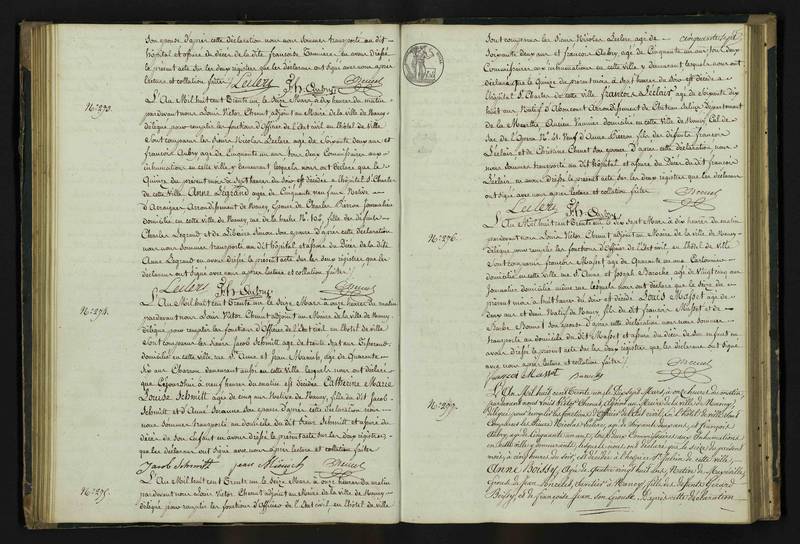 Son épouse d'après cette déclaration nous nous sommes transporté au dit
hôpital et assuré du décès de la dite françoise
le présent acte sur les deux registres que les déclarans ont signé avec nous après
lecture et collation faites
Leclerc Fs Aubry Chenut
N.o 273.
L'An Mil huit cent trente un le Seize Mars à dix heures du matin
pardevant nous Louis Victor Chenut adjoint au Maire de la ville de Nancy
délégué pour remplir les fonctions d'Officier de l'Etat civil en l'hôtel de Ville
Sont comparus les Sieurs Nicolas Leclerc agé de Soixante deux ans et
françois Aubry agé de Cinquante un ans tous deux Commissaires aux
inhumations en cette ville y demeurant lesquels nous ont déclaré que le
Quinze du présent mois à Sept heures du soir est décédée à l'hôpital St Charles
de cette Ville Anne Legrand agée de Cinquante neuf ans Native
d' Arrondissement de Nancy, Epouse de Charles Pierron Journalier
domiciliée en cette ville de Nancy, rue de la hache No 104, fille des défunts
Charles Legrand et de Libaire Simon son épouse d'après cette déclaration
nous nous sommes transporté au dit hôpital et assuré du Décès de la dite
Anne Legrand en avons dressé le présent acte sur les deux registres que les
déclarans ont signé avec nous après lecture et collation faites
Leclerc Fs Aubry Chenut
N.o 274.
L'An Mil huit cent trente un le Seize Mars à onze heures du matin
pardevant nous Louis Victor Chenut adjoint au Maire de la ville de Nancy
délégué pour remplir les fonctions d'Officier de l'Etat civil, en l'hôtel de ville
Sont comparus les Sieurs Jacob Schmitt agé de trente sept ans
domicilié en cette ville, rue St Anne et Jean agé de Quarante
six ans Charron demeurant aussi en cette ville lesquels nous ont déclaré
que aujourd'hui à neuf heures du matin est décédée Catherine Marie
Louise Schmitt agée de cinq ans Native de Nancy, fille du dit Jacob
Schmitt et d'Anne Jeanne son épouse d'après cette déclaration
nous nous sommes transporté au domicile du dit Sieur Schmitt et assuré du
décès de son Enfant en avons dressé le présent acte sur les deux registres
que les déclarans ont signé avec nous après lecture et collation faites
Jacob Schmitt Jean Chenut
N.o 275.
L'An Mil huit cent trente un le Seize Mars à onze heures du matin
pardevant nous Louis Victor Chenut adjoint au Maire de la ville de Nancy
délégué pour remplir les fonctions d'Officier de l'Etat civil, en l'hôtel de ville
Cinquante sept
Sont comparus les Sieurs Nicolas Leclerc agé de
Soixante deux ans et françois Aubry, agé de Cinquante un ans tous deux
Commissaires aux inhumations en cette ville y demeurant lesquels nous ont
déclaré que le Quinze du présent mois à Sept heures du soir est décédé à
l'hôpital St Charles de cette ville françois Leclair agé de Soixante dix
huit ans Natif d'Aboncourt Arrondissement de Château Salins Département
de la Meurthe, Ancien Vannier domicilié en cette Ville de Nancy
de l'Opera No 21. Veuf d'Anne Pierron, fils des défunts françois
Leclair, et de Christine Chenet son épouse d'après cette déclaration nous
nous sommes transporté au dit hôpital, et assuré du Décès du dit françois
Leclair, en avons dressé le présent acte sur les deux registres que les déclarans
ont signé avec nous après lecture et collation faites
Leclerc Fs Aubry Chenut
N.o 276.
L'An Mil huit cent trente un le dix Sept Mars à dix heures du matin
pardevant nous Louis Victor Chenut adjoint au Maire de la ville de Nancy
délégué pour remplir les fonctions d'Officier de l'Etat civil, en l'hôtel de Ville
Sont comparus françois Masset agé de Quarante un ans
domicilié en cette ville rue St Anne et Joseph Baroche agé de Vingt cinq ans
Journalier domicilié même rue lesquels nous ont déclaré que le Seize du
présent mois à huit heures du soir est décédé Louis Masset agé de
deux ans et demi Natif de Nancy, fils du dit françois Masset et de
Barbe son épouse d'après cette déclaration nous nous sommes
transporté au domicile du dit Masset et assuré du décès de son enfant en
avons dressé le présent acte sur les deux registres que les déclarans ont signé
avec nous après lecture et collation faites
françois Masset Chenut
N.o 277.
L'An Mil huit cent trente un le Dix Sept Mars à onze heures du matin,
pardevant nous Louis Victor Chenut, adjoint au Maire de la ville de Nancy
délégué pour remplir les fonctions d'Officier de l'Etat civil, en l'hôtel de ville sont
comparus les Sieurs Nicolas Leclerc, agé de Soixante deux ans, et françois
Aubry, agé de Cinquante un ans, tous deux Commissaires aux inhumations
en cette ville y demeurant, lesquels nous ont déclaré que le Seize du présent
mois, à cinq heures du soir, est décédée à l'hospice St Julien de cette ville,
Anne Boissy, agée de quatre vingt huit ans, Native de
épouse de Jean à Nancy, fille des défunts Gérard
Boissy, et de françoise Jean, son épouse. D'après cette déclaration